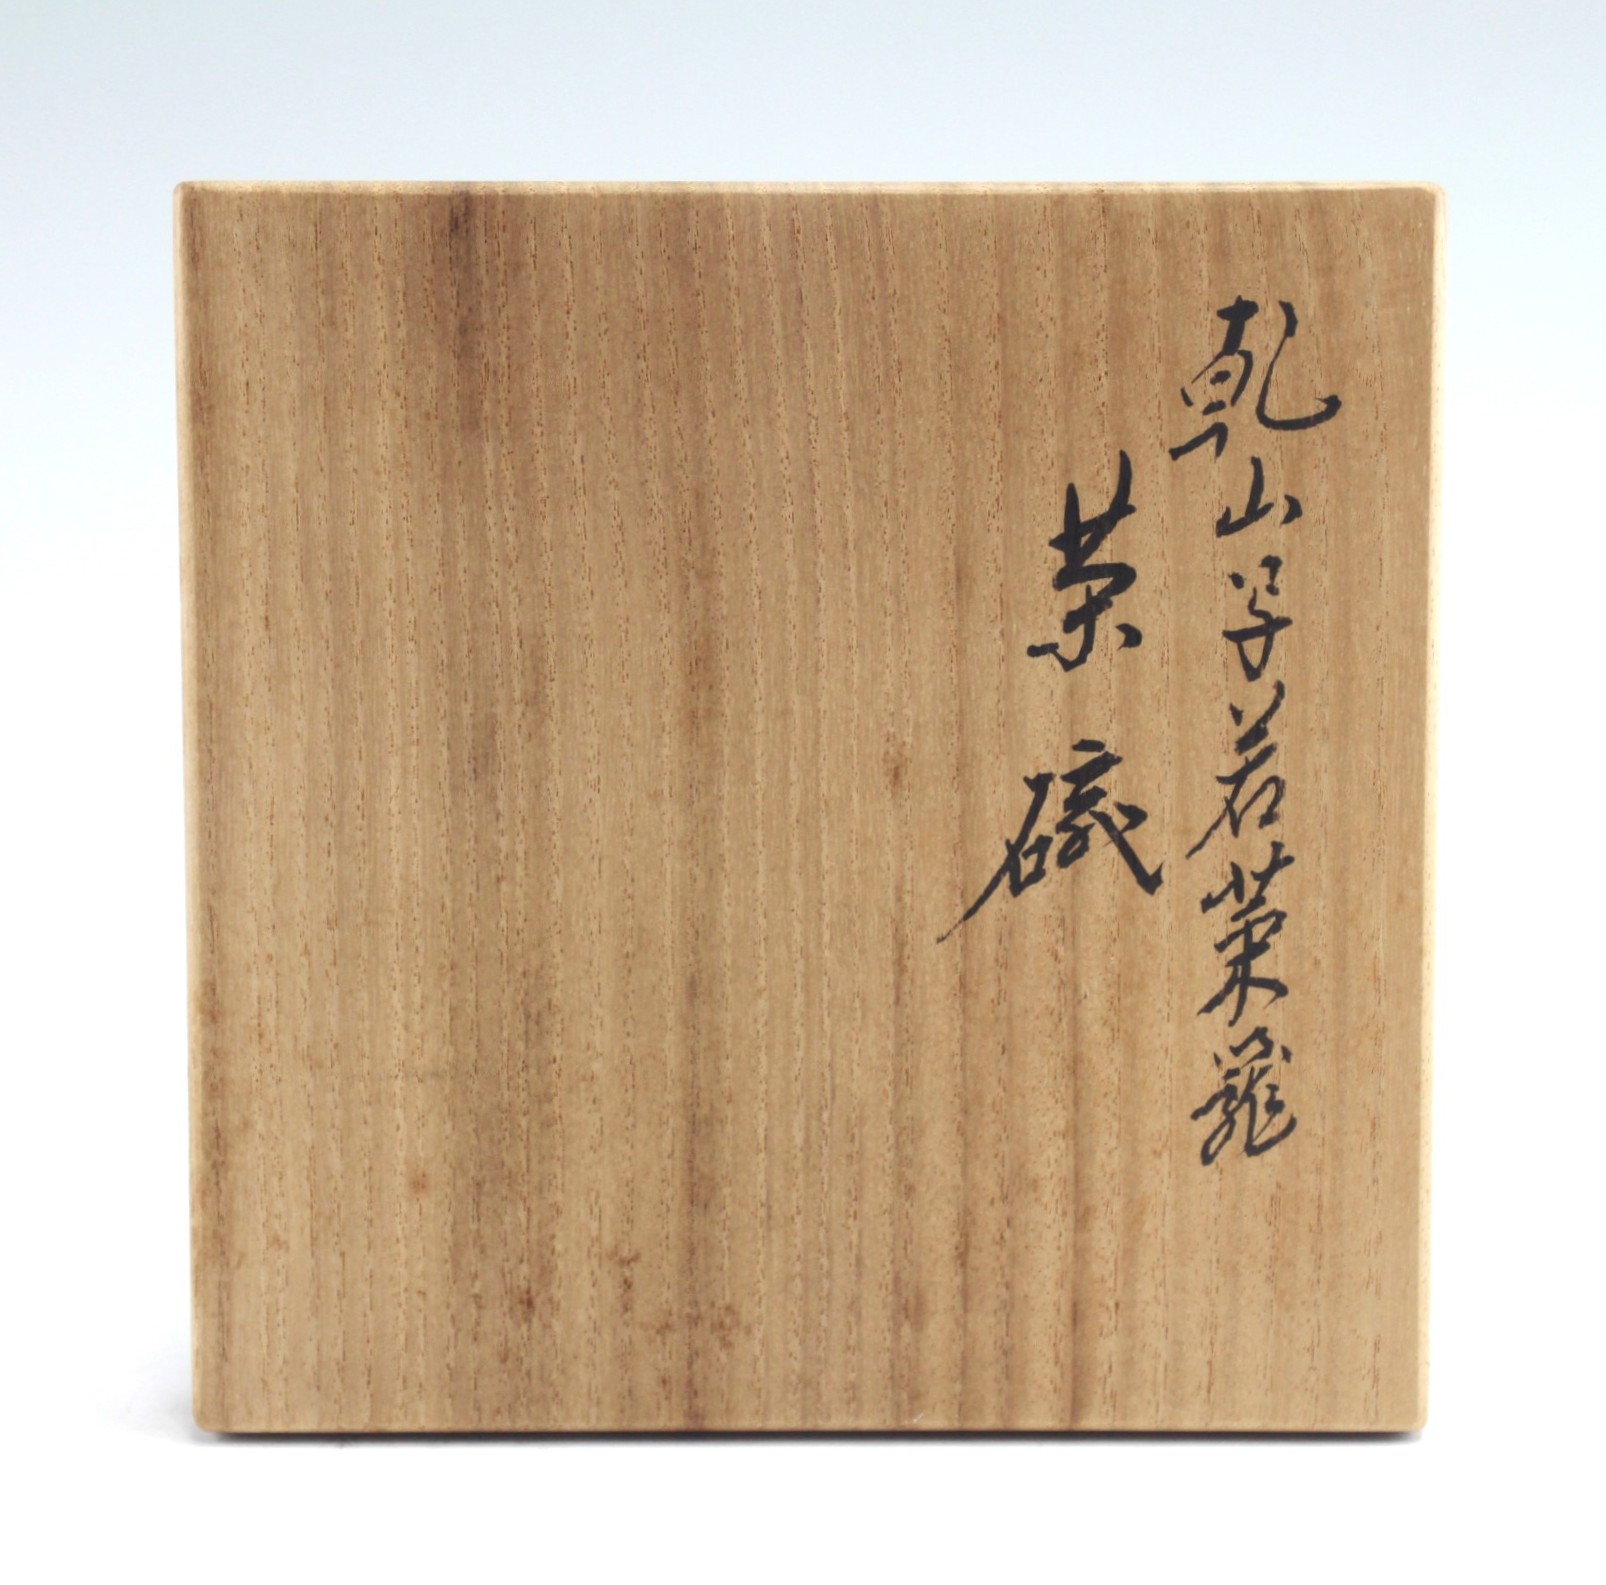 乾山写若菜籠
茶碗